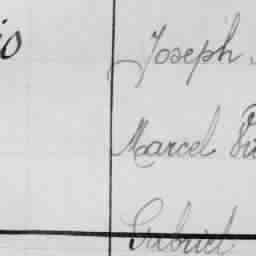 io Joseph
Marcel
Gabriel